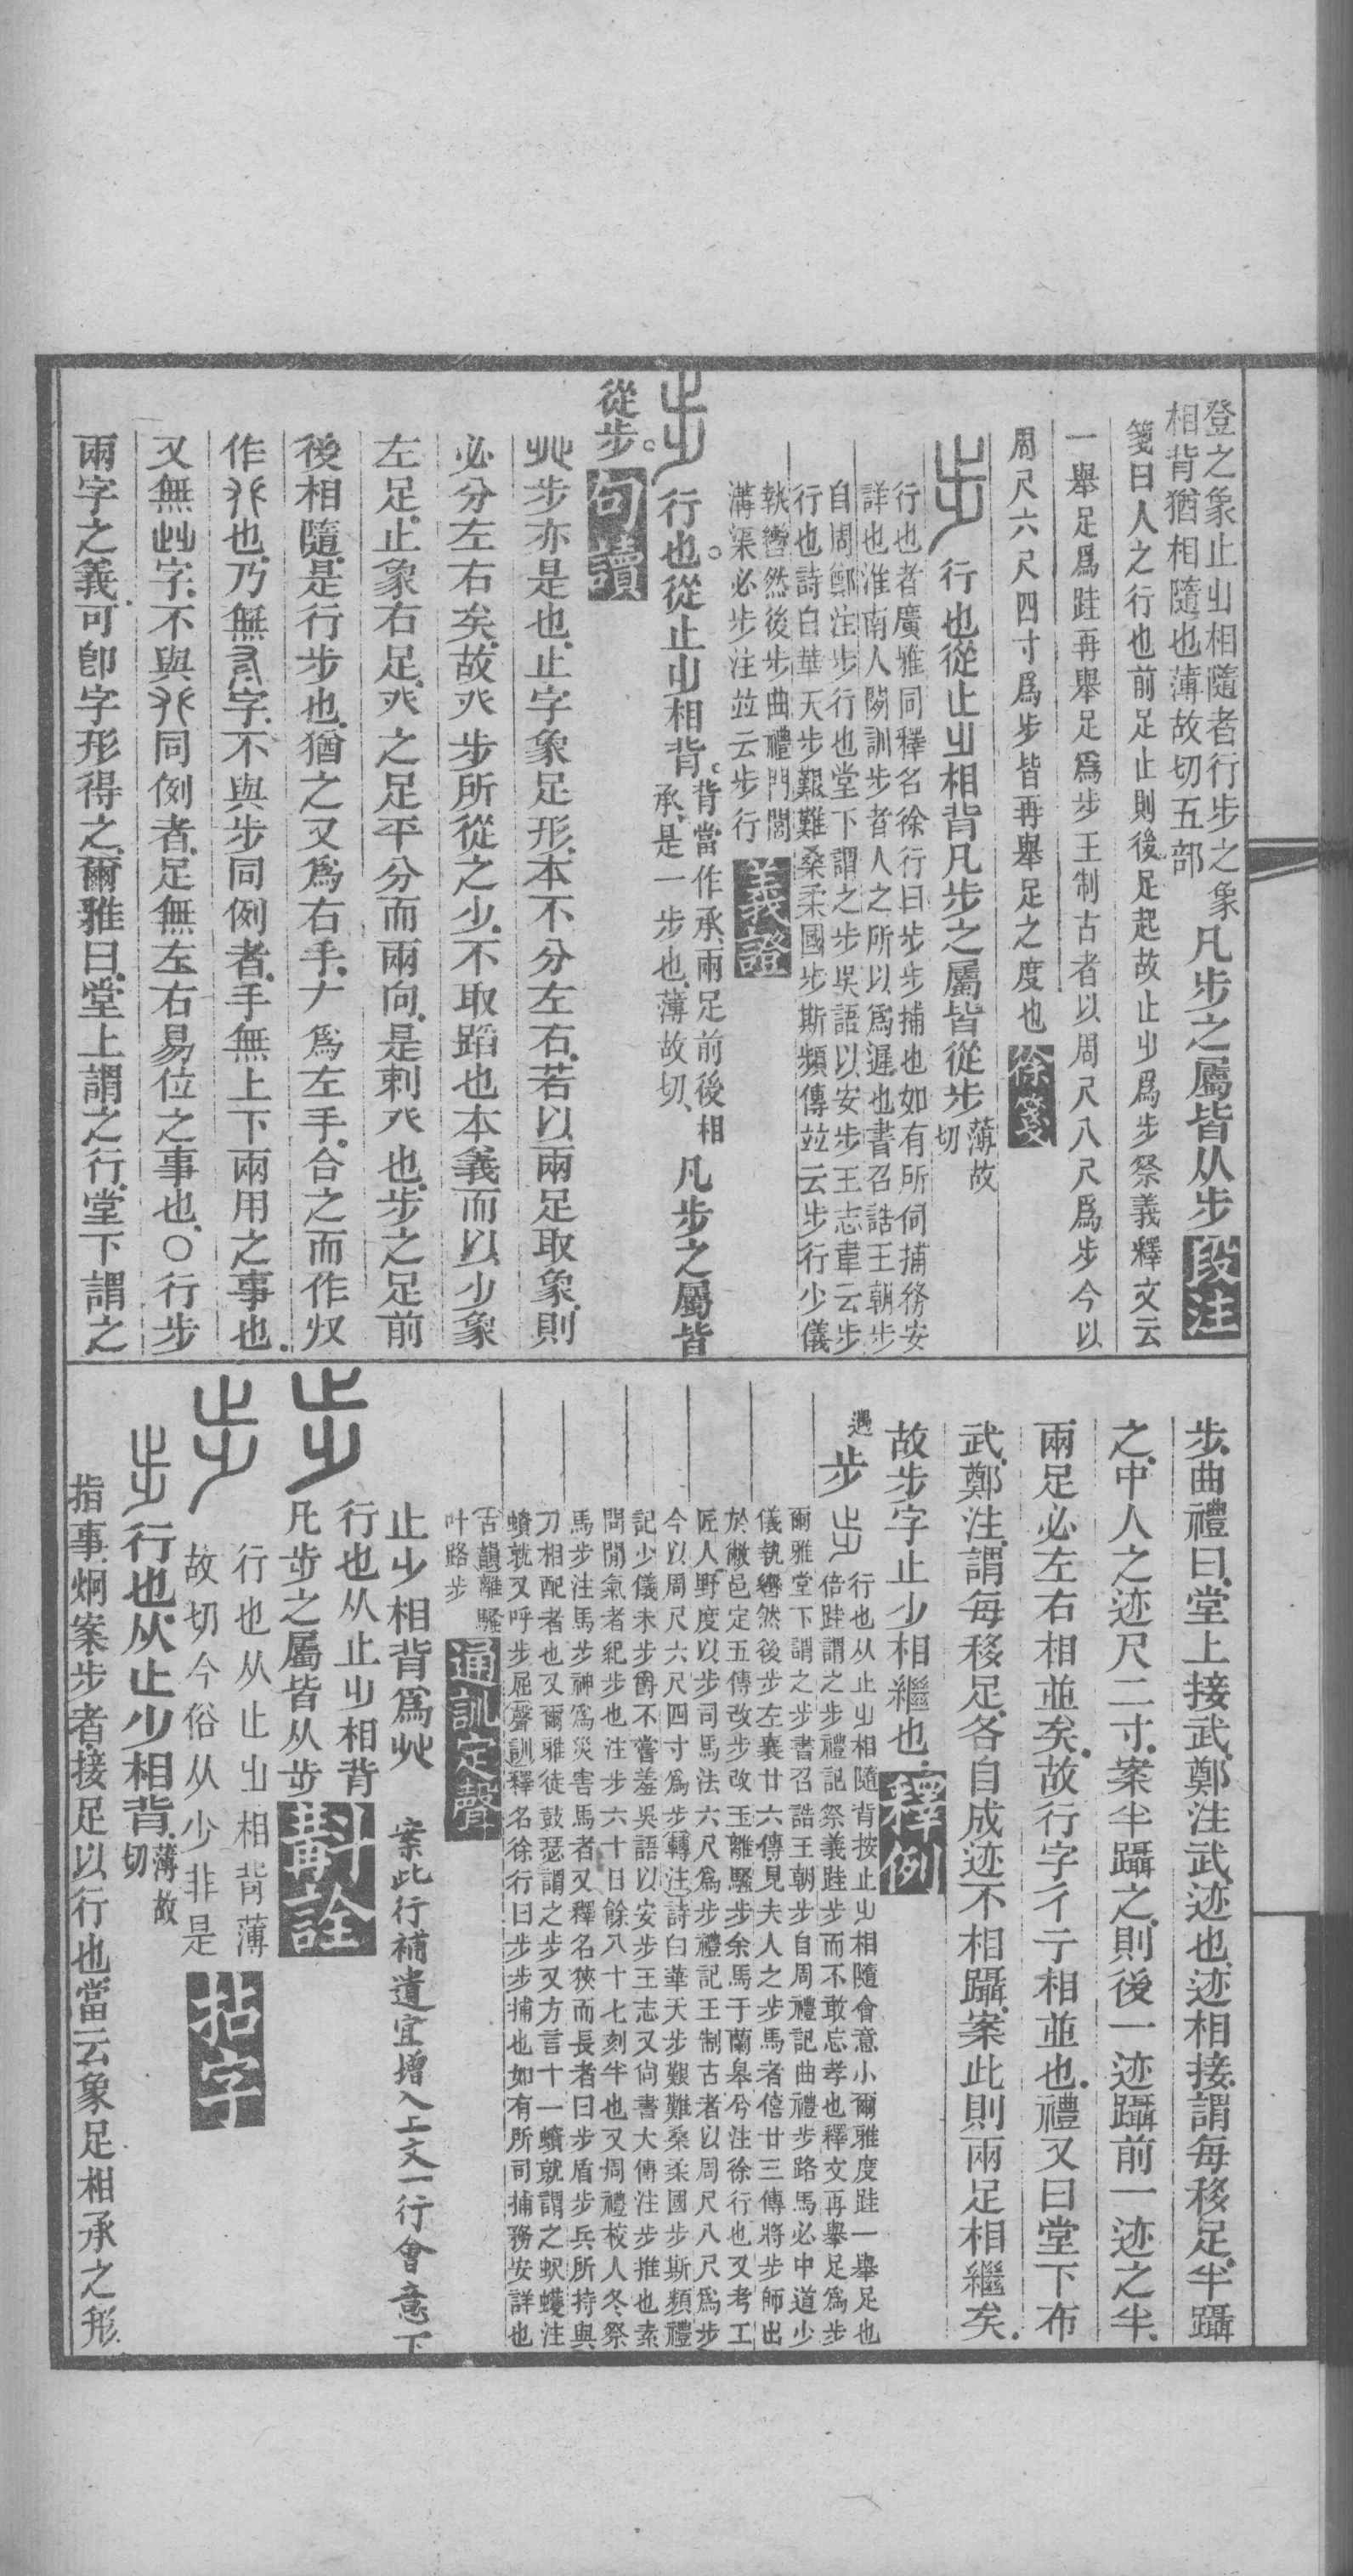 登之象止𣥂相隨者行步之象
相背猶相隨也薄故切五部
凡步之屬皆从步 段注
箋曰人之行也前足止則後足起故止𣥂爲步祭義釋文云
一舉足爲跬再舉足爲步王制古者以周尺八尺爲步今以
周尺六尺四寸爲步皆再舉足之度也 徐箋
步 行也從止𣥂相背凡步之屬皆從步 薄故
切
行也者廣雅同釋名徐行曰步步捕也如有所伺捕務安
詳也淮南人閒訓步者人之所以爲遲也書召誥王朝步
自周鄭注步行也堂下謂之步吳語以安步王志韋云步
行也詩白華天步艱難桑柔國步斯頻傳竝云步行少儀
執轡然後步曲禮門閭
溝渠必步注竝云步行 義證
步 行也。從止𣥂相背。背當作承、兩足前後相
承、是一步也、薄故切、
凡步之屬皆
從步。 句讀
癶步亦是也.止字象足形.本不分左右.若以兩足取象.則
必分左右矣.故癶步所從之少.不取蹈也本義而以少象
左足.止象右足.癶之足平分而兩向.是剌癶也.步之足前
後相隨.是行步也.猶之又爲右手.𠂇爲左手.合之而作𠬜
作𠬜也.乃無字.不與步同例者.手無上下兩用之事也.
又無字.不與同例者.足無左右易位之事也.○行步
兩字之義.可卽字形得之.爾雅曰.堂上謂之行.堂下謂之
步.曲禮曰.堂上接武.鄭注武.迹也.迹相接.謂每移足.半躡
之.中人之迹尺二寸.案半躡之.則後一迹躡前一迹之半.
兩足必左右相並矣.故行字彳亍相並也.禮又曰堂下布
武.鄭注.謂每移足.各自成迹不相躡.案此則兩足相繼矣.
故步字止少相繼也. 釋例
遇步 行也从止𣥂相隨背按止𣥂相隨會意小爾雅度跬一舉足也
倍跬謂之步禮記祭義跬步而不敢忘孝也釋文再舉足爲步
爾雅堂下謂之步書召誥王朝步自周禮記曲禮步路馬必中道少
儀執轡然後步左襄廿六傳見夫人之步馬者僖廿三傳將步師出
於敝邑定五傳改步改玉離騷步余馬于蘭皋兮注徐行也又考工
匠人野度以步司馬法六尺爲步禮記王制古者以周尺八尺爲步
今以周尺六尺四寸爲步轉注詩白華天步艱難桑柔國步斯頻禮
記少儀未步爵不嘗羞吳語以安步王志又尙書大傳注步推也素
問閒氣者紀步也注步六十日餘八十七刻半也又周禮校人冬祭
馬步注馬步神爲災害馬者又釋名狹而長者曰步盾步兵所持與
刀相配者也又爾雅徒鼓瑟謂之步又方言十一蠀就謂之蚇蠖注
蠀就又呼步屈聲訓釋名徐行曰步步捕也如有所司捕務安詳也
古韻離騷
叶路步 通訓定聲
止少相背爲癶 案此行補遺宜增入上文一行會意下
步 行也从止𣥂相背
凡步之屬皆从步 斠詮
步 行也从止𣥂相背薄
故切今俗从少非是 拈字
步 行也.从止少相背. 薄故
切
指事.烱案步者接足以行也當云象足相承之形.